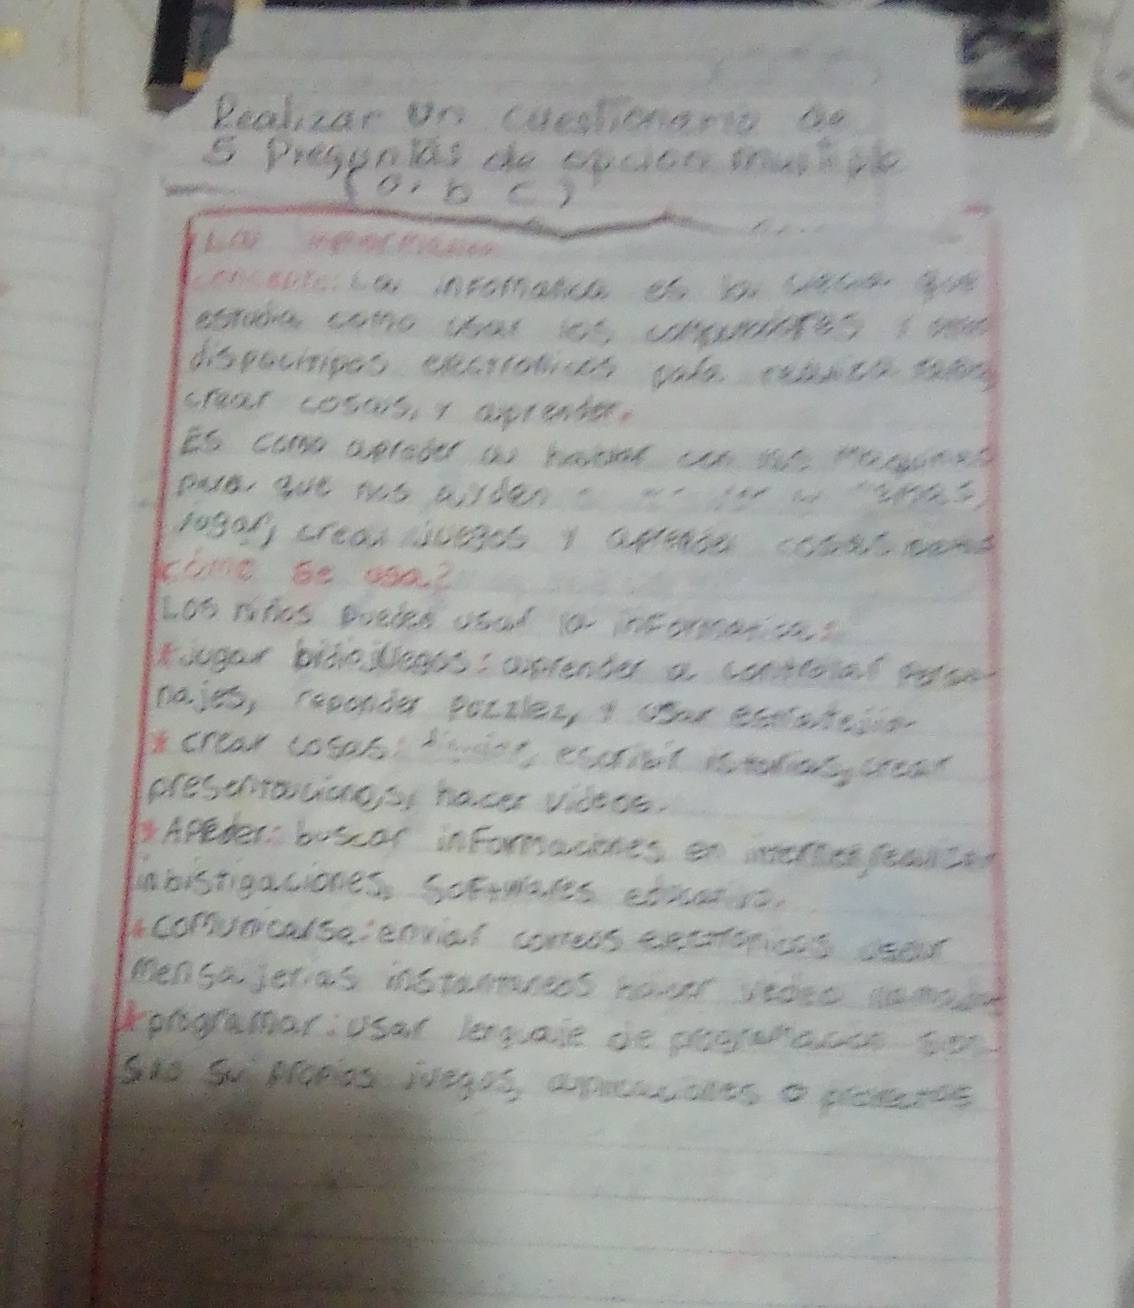 Realizar un cuestionario de
5 Preguntas de opcion multiple
(a, b c)
La informatica
concepto: La infomatica es la ciecia que
estudia como usar los computadores i
dispocitipos electronicos para
crear cosas, y aprender.
Es como apreder a hablar con las maquinas
para que nos ayuden a
jugar, crear juegos y aprender cosas
como se usa?
Los niños pueden usar la informatica:
*jugar bidio juegos: aprender a controlar perso-
najes, reponder pozzlez, y usar
* crear cosas: escribir istorias, crear
presentaciones, hacer videos.
*Apeder: buscar informaciones en internet, realizar
inbistigaciones, softwares educativo.
*comunicarse: enviar correos electronicos usar
mensajerias instantaneas hacer video
*programar: usar lenguaje de programacion
su propios juegos, aplicaciones o proyectos